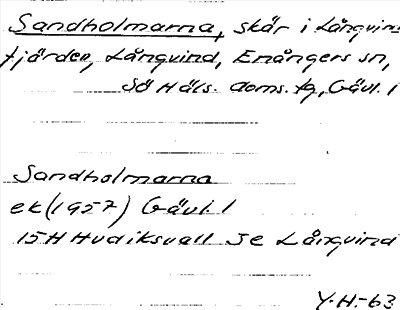 Sandholmarna, skär i Långvind
fjärden, Långvind, Enångers sn,
Sö Häls. doms. tg, Gävl. l
Sandholmarna
ek (1957) Gävl. l
15H Hudiksvall Je Långvind
Y.H.-63